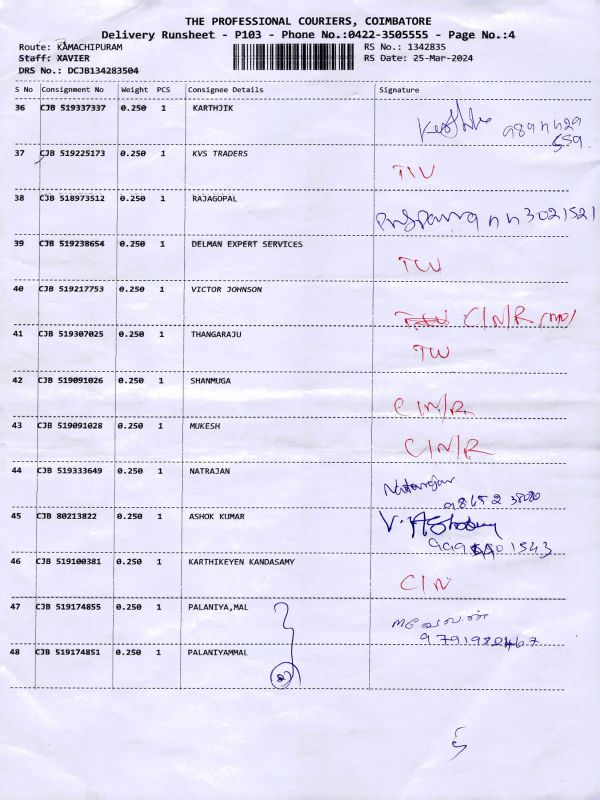 THE PROFESSIONAL COURIERS, COIMBATORE
Delivery Runsheet - P103 - Phone No.:0422-3505555 - Page No.:4
Route: KAMACHIPURAM
RS No.: 1342835
Staff: XAVIER
RS Date: 25-Mar-2024
DRS No.: DCJB134283504
S No Consignment No Weight PCS Consignee Details Signature
36 CJB 519337337 0.250 1 KARTHJIK
37 CJB 519225173 0.250 1 KVS TRADERS
TW
38 CJB 518973512 0.250 1 RAJAGOPAL
39 CJB 519238654 0.250 1 DELMAN EXPERT SERVICES
TW
40 CJB 519217753 0.250 1 VICTOR JOHNSON
C/N/R
41 CJB 519307025 0.250 1 THANGARAJU
TW
42 CJB 519091026 0.250 1 SHANMUGA
C/N/R
43 CJB 519091028 0.250 1 MUKESH
C/N/R
44 CJB 519333649 0.250 1 NATRAJAN
Natarajan
45 CJB 80213822 0.250 1 ASHOK KUMAR
46 CJB 519100381 0.250 1 KARTHIKEYEN KANDASAMY
C/N
47 CJB 519174855 0.250 1 PALANIYA,MAL
48 CJB 519174851 0.250 1 PALANIYAMMAL